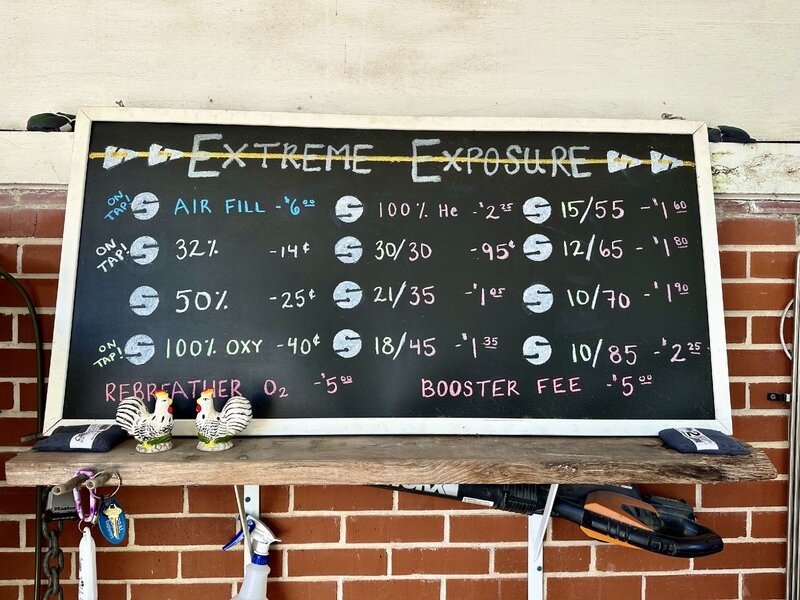 EXTREME EXPOSURE
ON TAP! AIR FILL - $6.00 100% He - $2.25 15/55 - $1.60
ON TAP! 32% - 14¢ 30/30 - 95¢ 12/65 - $1.80
50% - 25¢ 21/35 - $1.05 10/70 - $1.90
ON TAP! 100% OXY - 40¢ 18/45 - $1.35 10/85 - $2.25
REBREATHER O2 - $5.00 BOOSTER FEE - $5.00